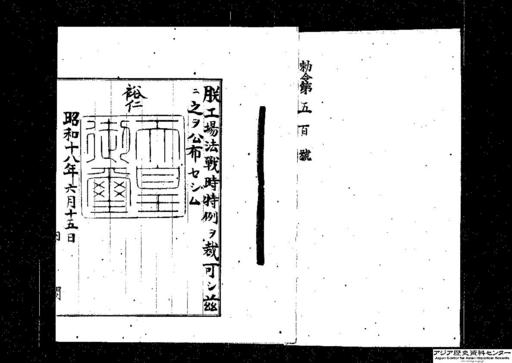 勅令第五百號
朕工場法戰時特例ヲ裁可シ茲
ニ之ヲ公布セシム
裕仁
天皇御璽
昭和十八年六月十五日
内閣
アジア歴史資料センター
Japan Center for Asian Historical Records